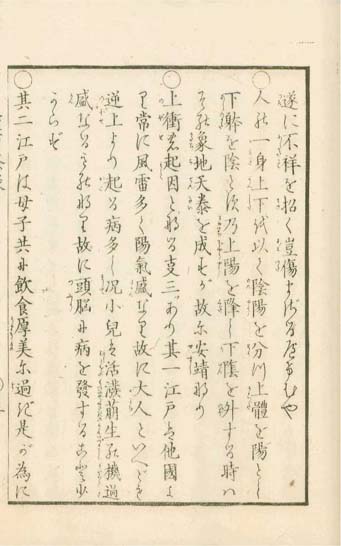 遂に不祥を招く豈傷まざるべけむや
◯人の一身上下を以て陰陽を分川上體を陽とし
下躰を陰とす乃上陽を降し下陰を升する時ハ
其象地天泰を成すが故に安靖なり
◯上衝の起因となる支三ツあり其一江戸は他國よ
り常に風雷多く陽氣盛なり故に大人といへども
逆上より起る病多し况小兒は活溌萌生の機過
盛なるものなり故に頭脳に病を發すること少
からず
◯其二江戸は母子共に飲食厚美に過ぎ是が為に